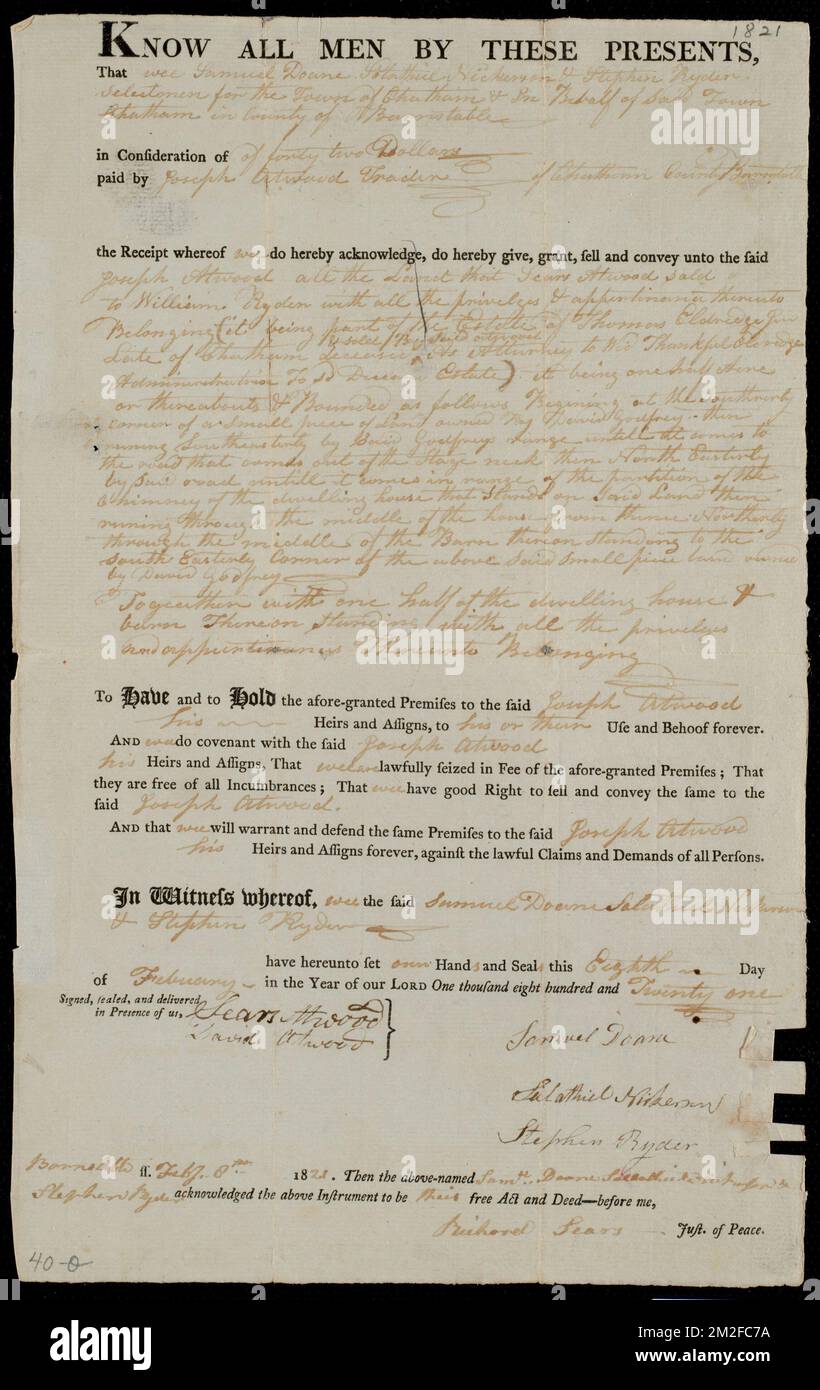 1821
KNOW ALL MEN BY THESE PRESENTS,
That wee Samuel Doane Salathiel Nickerson & Stephen Ryder
Selectmen for the Town of Chatham & In Behalf of Said Town
Chatham in County of Barnstable
in Conſideration of of forty two Dollars
paid by Joseph Atwood Trader of Chatham County Barnstable
the Receipt whereof wee do hereby acknowledge, do hereby give, grant, ſell and convey unto the ſaid
Joseph Atwood all the Land that Sears Atwood sold
to William Ryder with all the privelges & appurtinances thereunto
Belonging (it being part of the Estate of Thomas Eldredge Jur
& sold By Said atwood
Late of Chatham deceasd As Attorney to Wid Thankful Eldredge
Administratrix To Sd Deceasd Estate) it being one half Acre
or thereabouts & Bounded as follows Begining at the Southerly
corner of a Small piece of Land owned by David Godfrey then
runing Southeasterly by Said Godfreys range untill it comes to
the road that comes out of the Stage neck then North Easterly
by Said road untill it comes in range of the partition of the
Chimney of the dwelling house that Stands on Said Land then
runing through the middle of the house from thence Northerly
through the middle of the Barn thereon Standing to the
South Easterly Corner of the above Said Small piece land owned
by David Godfrey
Togearther with one half of the dwelling house &
barn Thereon Standing with all the privelges
and appurtinances Thereunto Belonging
To Have and to Hold the afore-granted Premiſes to the ſaid Joseph Atwood
his Heirs and Aſſigns, to his or their Uſe and Behoof forever.
AND wee do covenant with the ſaid Joseph Atwood
his Heirs and Aſſigns, That wee are lawfully ſeized in Fee of the afore-granted Premiſes; That
they are free of all Incumbrances; That wee have good Right to ſell and convey the ſame to the
ſaid Joseph Atwood.
AND that wee will warrant and defend the ſame Premiſes to the ſaid Joseph Atwood
his Heirs and Aſſigns forever, againſt the lawful Claims and Demands of all Perſons.
In Witneſs whereof, wee the ſaid Samuel Doane Salathiel Nickerson
& Stephen Ryder
have hereunto ſet our Hands and Seals this Eighth Day
of Febuary in the Year of our LORD One thouſand eight hundred and Twenty one
Signed, ſealed, and delivered
in Preſence of us, Sears Atwood
David Atwood
Samuel Doane
Salathiel Nickerson
Stephen Ryder
Barnstable ſſ. Feby. 8 1821. Then the above-named Saml. Doane Salathiel Nickerson &
Stephen Ryder acknowledged the above Inſtrument to be their free Act and Deed—before me,
Richard Sears Juſt. of Peace.
40-0
alamy
Image ID: 2M2FC7A
www.alamy.com